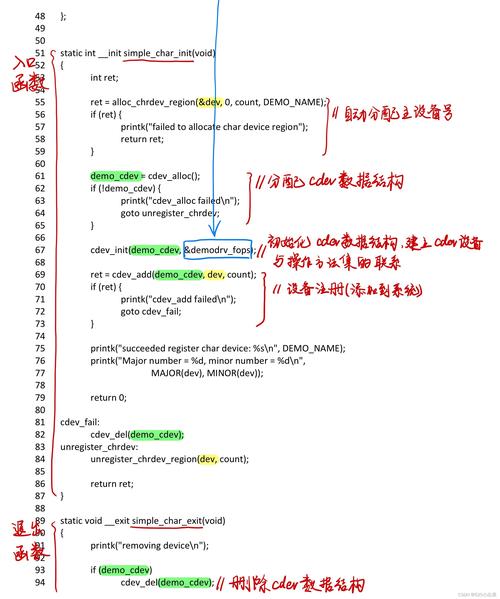 48 };
49
50
51 static int __init simple_char_init(void)
52 {
入口函数
53 int ret;
54
55 ret = alloc_chrdev_region(&dev, 0, count, DEMO_NAME);
56 if (ret) { // 自动分配主设备号
57 printk("failed to allocate char device region");
58 return ret;
59 }
60
61 demo_cdev = cdev_alloc();
62 if (!demo_cdev) { // 分配 cdev 数据结构
63 printk("cdev_alloc failed\n");
64 goto unregister_chrdev;
65 }
66
67 cdev_init(demo_cdev, &demodrv_fops); // 初始化 cdev 数据结构,建立 cdev 设备
68 与操作方法集的联系
69 ret = cdev_add(demo_cdev, dev, count);
70 if (ret) { // 设备注册(添加到系统)
71 printk("cdev_add failed\n");
72 goto cdev_fail;
73 }
74
75 printk("succeeded register char device: %s\n", DEMO_NAME);
76 printk("Major number = %d, minor number = %d\n",
77 MAJOR(dev), MINOR(dev));
78
79 return 0;
80
81 cdev_fail:
82 cdev_del(demo_cdev);
83 unregister_chrdev:
84 unregister_chrdev_region(dev, count);
85
86 return ret;
87 }
88
89 static void __exit simple_char_exit(void)
退出函数
90 {
91 printk("removing device\n");
92
93 if (demo_cdev)
94 cdev_del(demo_cdev); // 删除 cdev 数据结构